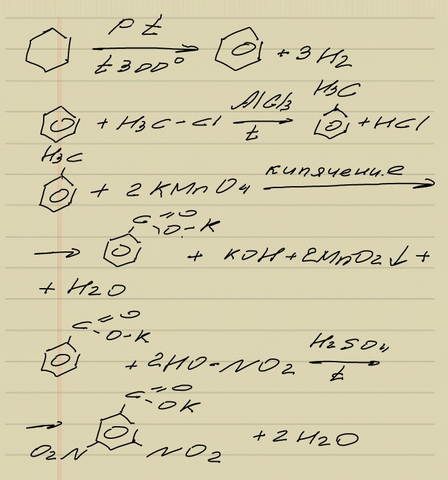 Pt
t 300°
+ 3H2
+ H3C-Cl AlCl3 t H3C + HCl
H3C
+ 2KMnO4 кипячение
C=O O-K + KOH + 2MnO2↓ +
+ H2O
C=O O-K
+ 2HO-NO2 H2SO4 t
C=O OK
O2N NO2 + 2H2O